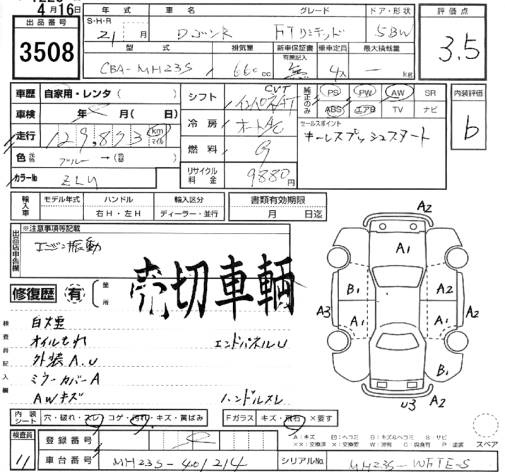 4月16日
出品番号 3508
S-H-R 年式 21 月
車名 ワゴンR
グレード FTリミテッド
ドア・形状 5BW
型式 CBA-MH23S
排気量 660cc
新車保証書 有無記入 無
乗車定員 4人
最大積載量 — kg
評価点 3.5
車歴 自家用・レンタ( )
車検 年 月( 日)
走行 129,873 km マイル
色 ブルー →( )
カラーNo ZLU
シフト CVT
冷房 オートAC
燃料 G
リサイクル料金 9880円
純正のみ PS PW AW SR
ABS エアB TV ナビ
セールスポイント
キーレスプッシュスタート
内装評価 b
輸入車 モデル年式 ハンドル 輸入区分
年 右H・左H ディーラー・並行
書類有効期限
月 日迄
出品店申告欄 ※注意事項等記入
エンジン振動
修復歴 有 箇所
売切車輌
検査員記入欄
オイルもれ エンドパネルU
外装A.U
ミラーカバーA
AWキズ ハンドルスレ
内装シート 穴・破れ・スレ コゲ・汚れ・キズ・黄ばみ
Fガラス キズ・飛石 ×要す
検査員 11
登録番号
車台番号 MH23S-401214
シリアルNo. MH23S-WFTE-S
A2
A1
B1 B1
A3 A1 A1 A2
B2
U3 A2
スペア